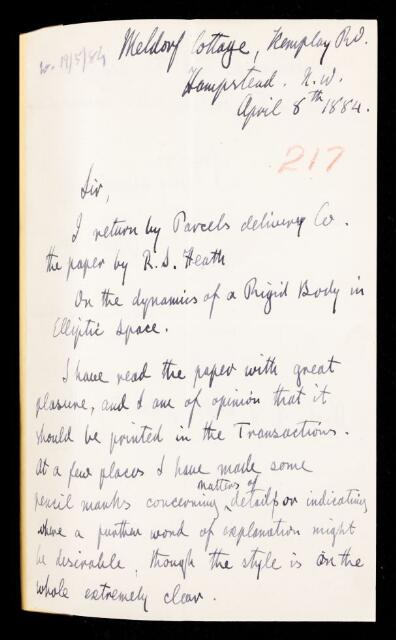 w. 19/5/84
Meldorf Cottage, Kemplay Rd.
Hampstead. N.W.
April 8th 1884.
217
Sir,
I return by Parcels delivery Co.
the paper by R. S. Heath
On the dynamics of a Rigid Body in
Elliptic space.
I have read the paper with great
pleasure, and I am of opinion that it
should be printed in the Transactions.
At a few places I have made some
pencil marks concerning matters of detail, or indicating
where a further word of explanation might
be desirable, though the style is on the
whole extremely clear.